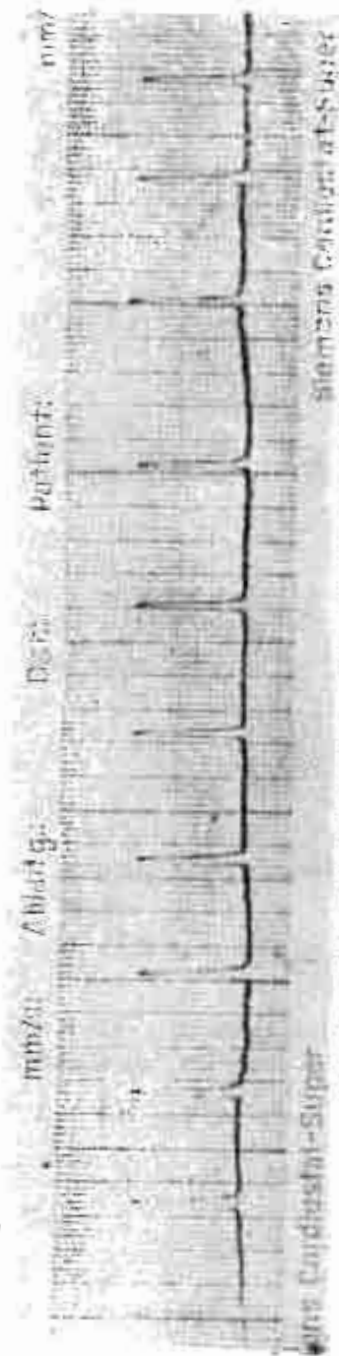 mm/s Ableitg.: Dat.: Patient: mm/
ens Cardiostat-Super Siemens Cardiostat-Super